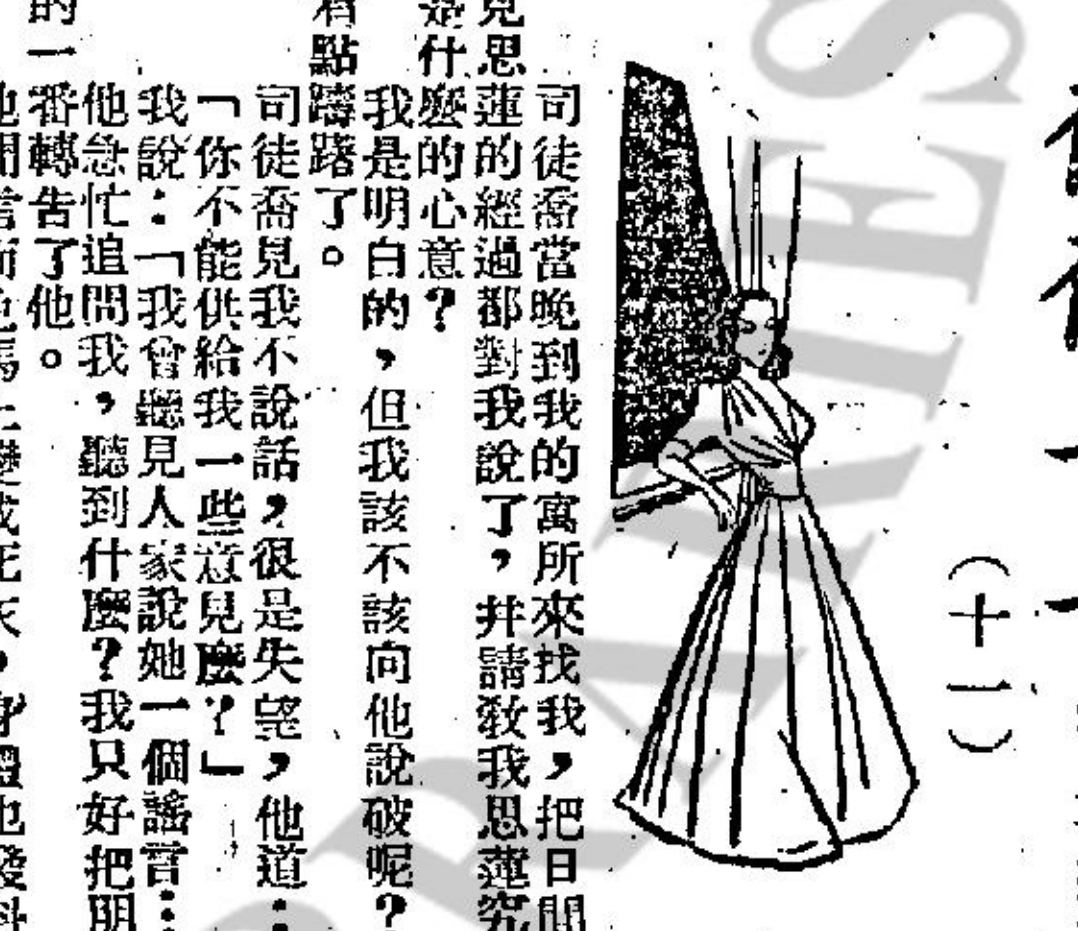 （十一）
司徒喬當晚到我的寓所來找我，把日間
見思蓮的經過都對我說了，幷請敎我思蓮究
是什麽的心意？
我是明白的，但我該不該向他說破呢？
有點躊躇了。
司徒喬見我不說話，很是失望，他道：
「你不能供給我一些意見麽？」
我說：「我曾聽見人家說她一個謠言：
他急忙追問我，聽到什麽？我只好把朋
的一番轉告了他。
言面色馬上變成死灰，身體也發
ARIES